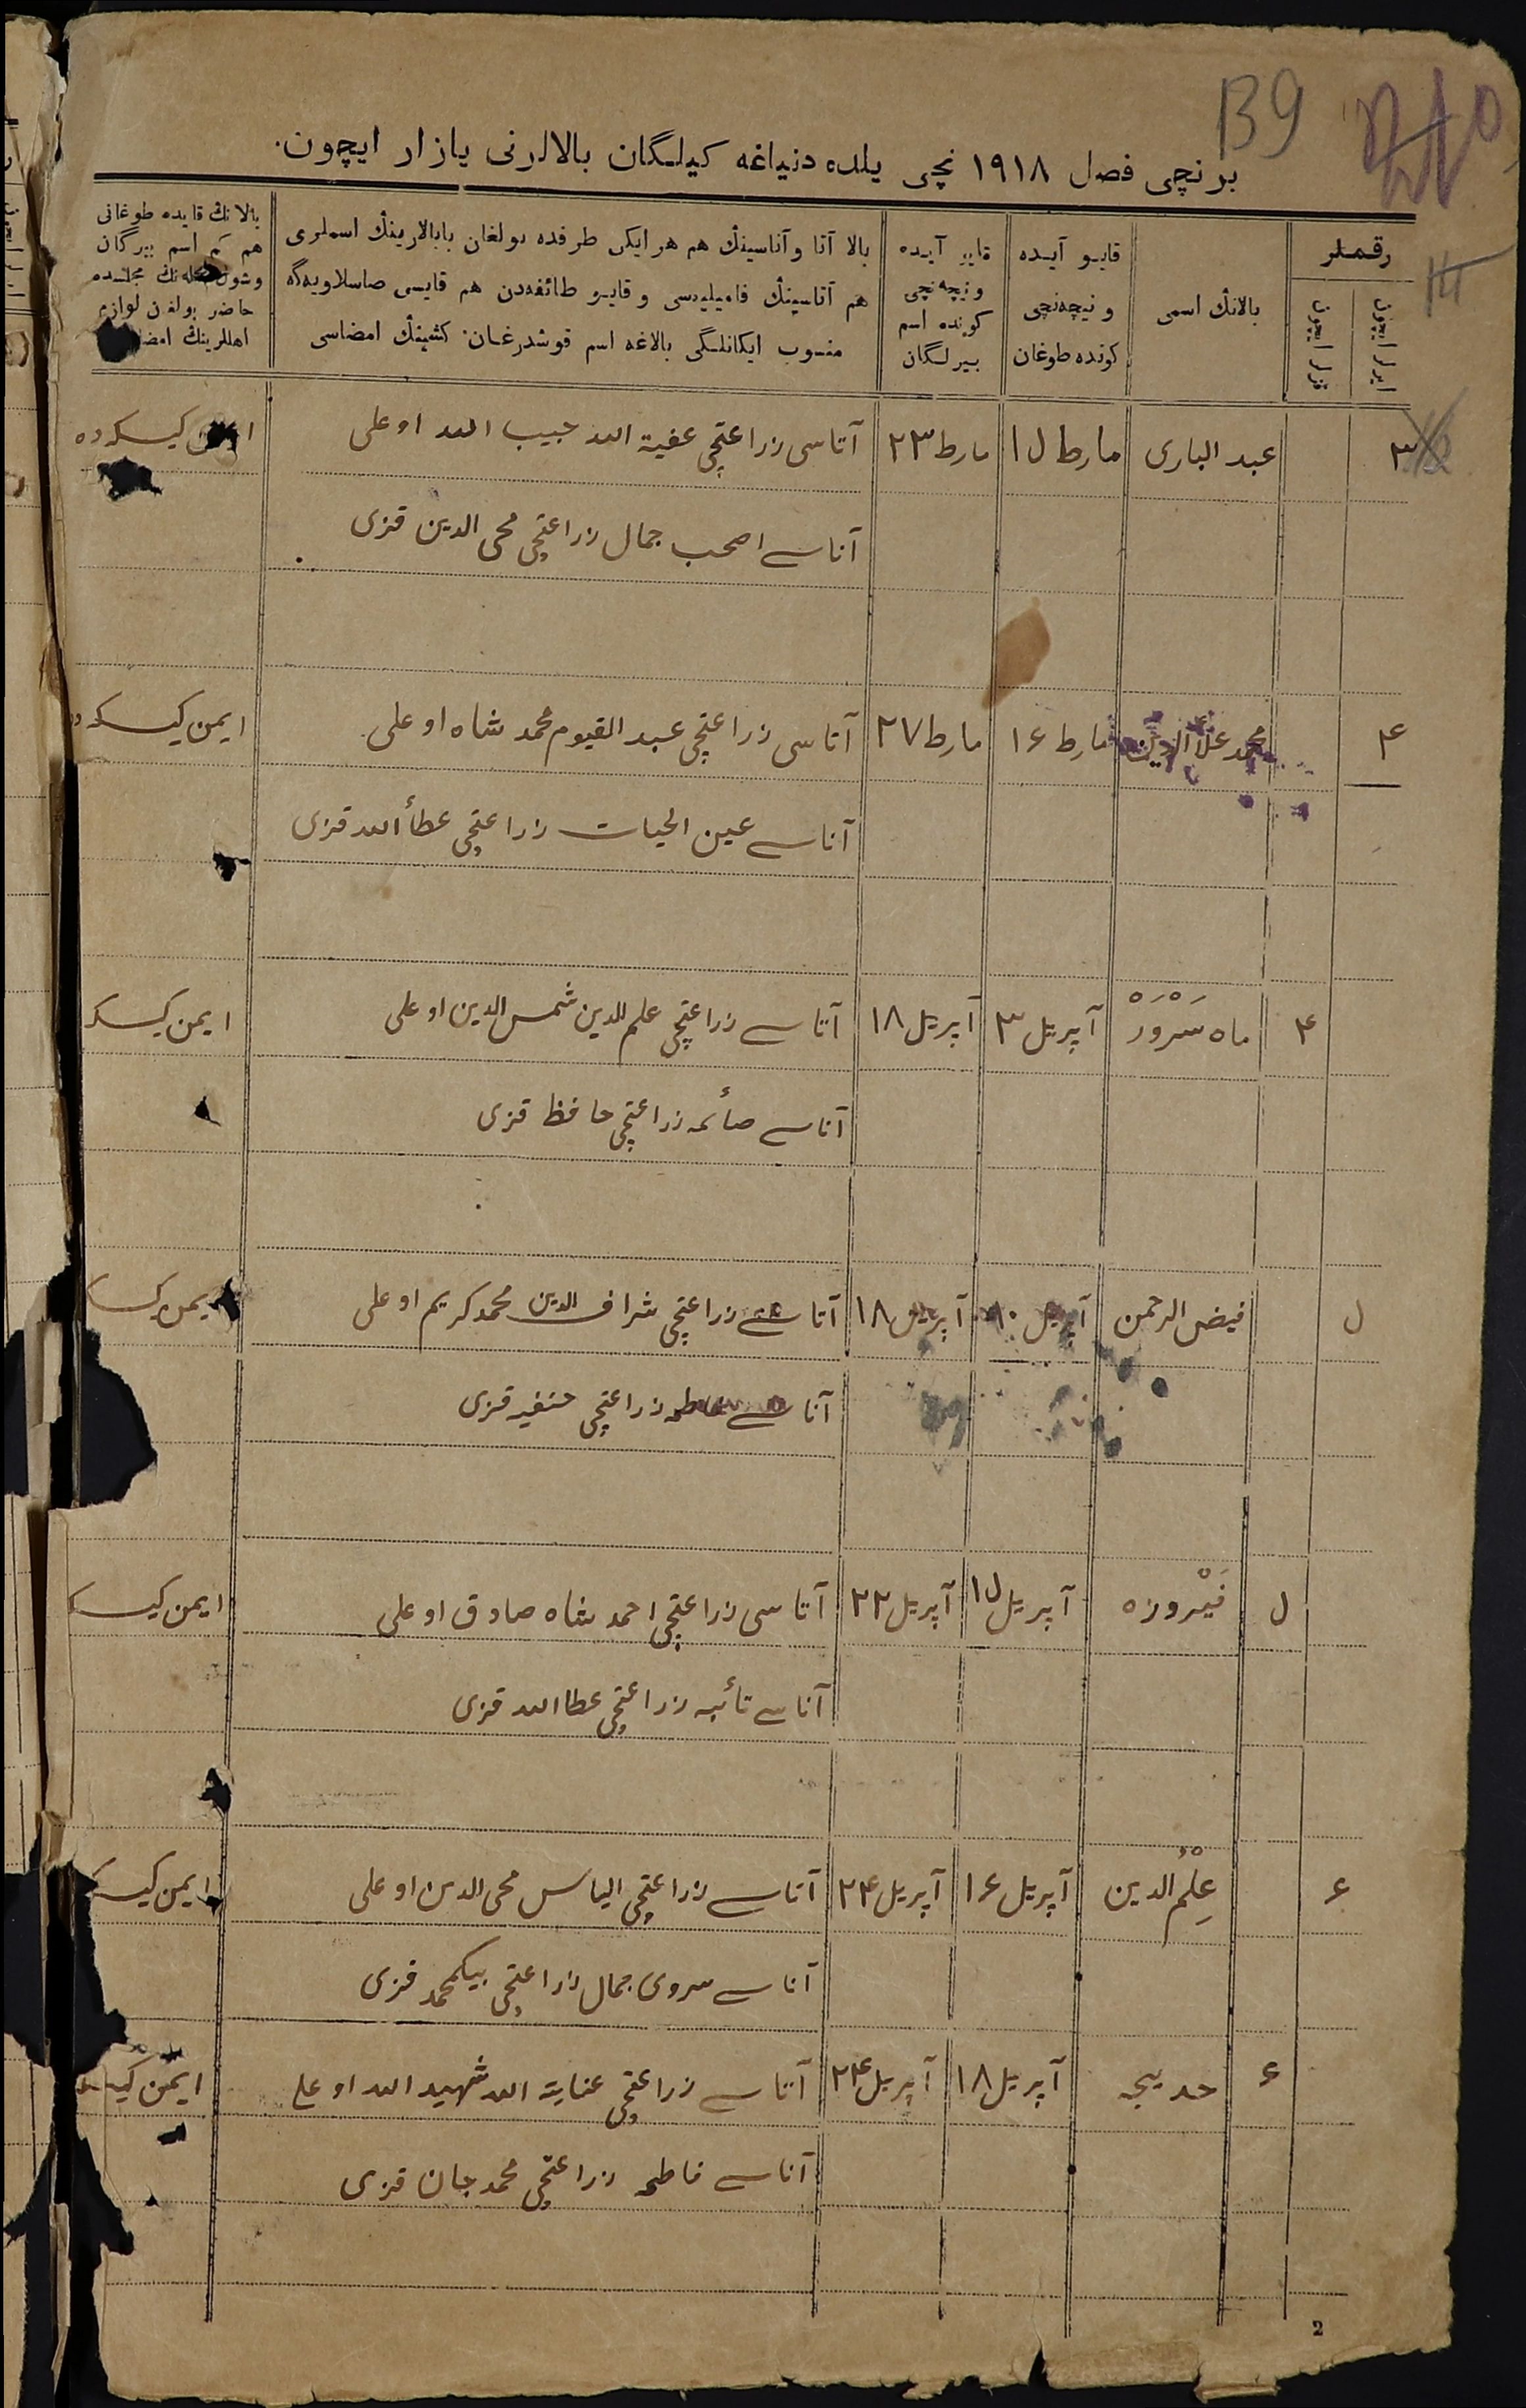 139
برنچی فصل ۱۹۱۸ نچی یلده دنیاغه کیلگان بالالرنی یازار ایچون.
رقملر
ایرلر ایچون
قزلر ایچون
بالانڭ اسمی
قایو آیده
و نیچه‌نچی
کونده طوغان
قایو آیده
و نیچه‌نچی
کونده اسم
بیرلگان
بالا آتا و آناسینڭ هم هر ایکی طرفده بولغان بابالارینڭ اسملری
هم آتاسینڭ فامیلیه‌سی و قایو طائفه‌دن هم قایسی صاسلاویه‌گه
منسوب ایکانلگی بالاغه اسم قوشدرغان کشینڭ امضاسی
بالانڭ قایده طوغانی
هم کم اسم بیرگان
وشول محله‌نڭ مجلسده
حاضر بولغان لوازم
اهللرینڭ امضا
۳ عبد الباری مارط ۱۵ مارط ۲۳ آتاسی زراعتچی حبیب الله اوغلی
آناسی اصحب جمال زراعتچی محی الدین قزی
۴ محمد علأ الدین مارط ۱۶ مارط ۲۷ آتاسی زراعتچی عبد القیوم محمد شاه اوغلی ایمن کیسکه ده
آناسی عین الحیات زراعتچی عطأ الله قزی
۴ ماه سرور آپریل ۳ آپریل ۱۸ آتاسی زراعتچی علم الدین شمس الدین اوغلی ایمن کیسکه
آناسی صائمه زراعتچی حافظ قزی
۵ فیض الرحمن آپریل ۱۰ آپریل ۱۸ آتاسی زراعتچی شراف الدین محمد کریم اوغلی
آناسی زراعتچی قزی
۵ فیروزه آپریل ۱۵ آپریل ۲۲ آتاسی زراعتچی احمد شاه صادق اوغلی ایمن کیسکه
آناسی تائبه زراعتچی عطا الله قزی
۶ علم الدین آپریل ۱۶ آپریل ۲۴ آتاسی زراعتچی الیاس محی الدین اوغلی ایمن کیسکه
آناسی سروی جمال زراعتچی بیکمحمد قزی
۶ خدیجه آپریل ۱۸ آپریل ۲۴ آتاسی زراعتچی عنایة الله شهید الله اوغلی ایمن کیسکه
آناسی فاطمه زراعتچی محمد جان قزی
2